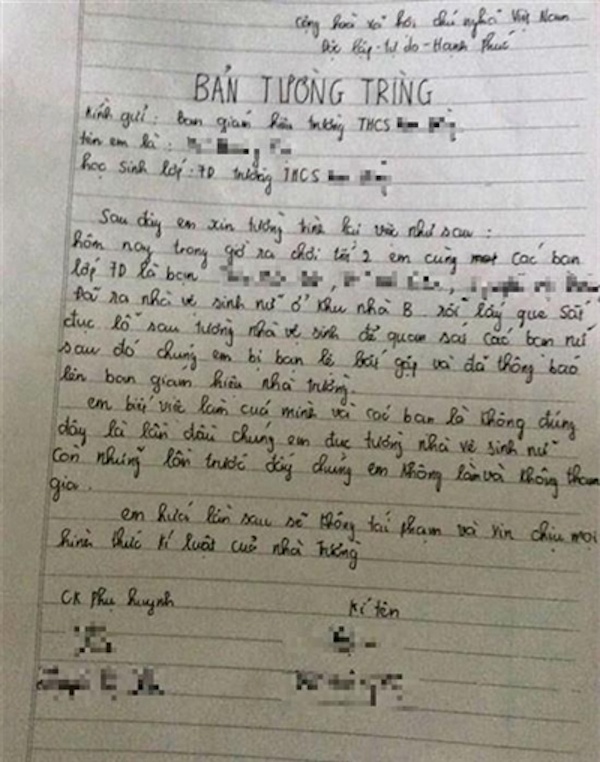 Cộng hoà xã hội chủ nghĩa Việt Nam
Độc lập - tự do - Hạnh Phúc
BẢN TƯỜNG TRÌNG
Kính gửi : Ban giám hiệu trường THCS
tên em là :
học sinh lớp : 7D trường THCS
Sau đây em xin tường trình lại việc như sau :
hôm nay trong giờ ra chơi tiết 2 em cùng một các bạn
lớp 7D là bạn
Đã ra nhà vệ sinh nữ ở khu nhà B rồi lấy que sắt
đục lỗ sau tường nhà vệ sinh để quan sát các bạn nữ
sau đó chúng em bị bạn lê bắt gặp và đã thông báo
lên ban giám hiệu nhà trường.
em biết việc làm của mình và các bạn là không đúng
đây là lần đầu chúng em đục tường nhà vệ sinh nữ
còn những lần trước đây chúng em không làm và không tham
gia.
em hứa lần sau sẽ không tái phạm và xin chịu mọi
hình thức kỉ luật của nhà trường
CK phụ huynh
Kí tên